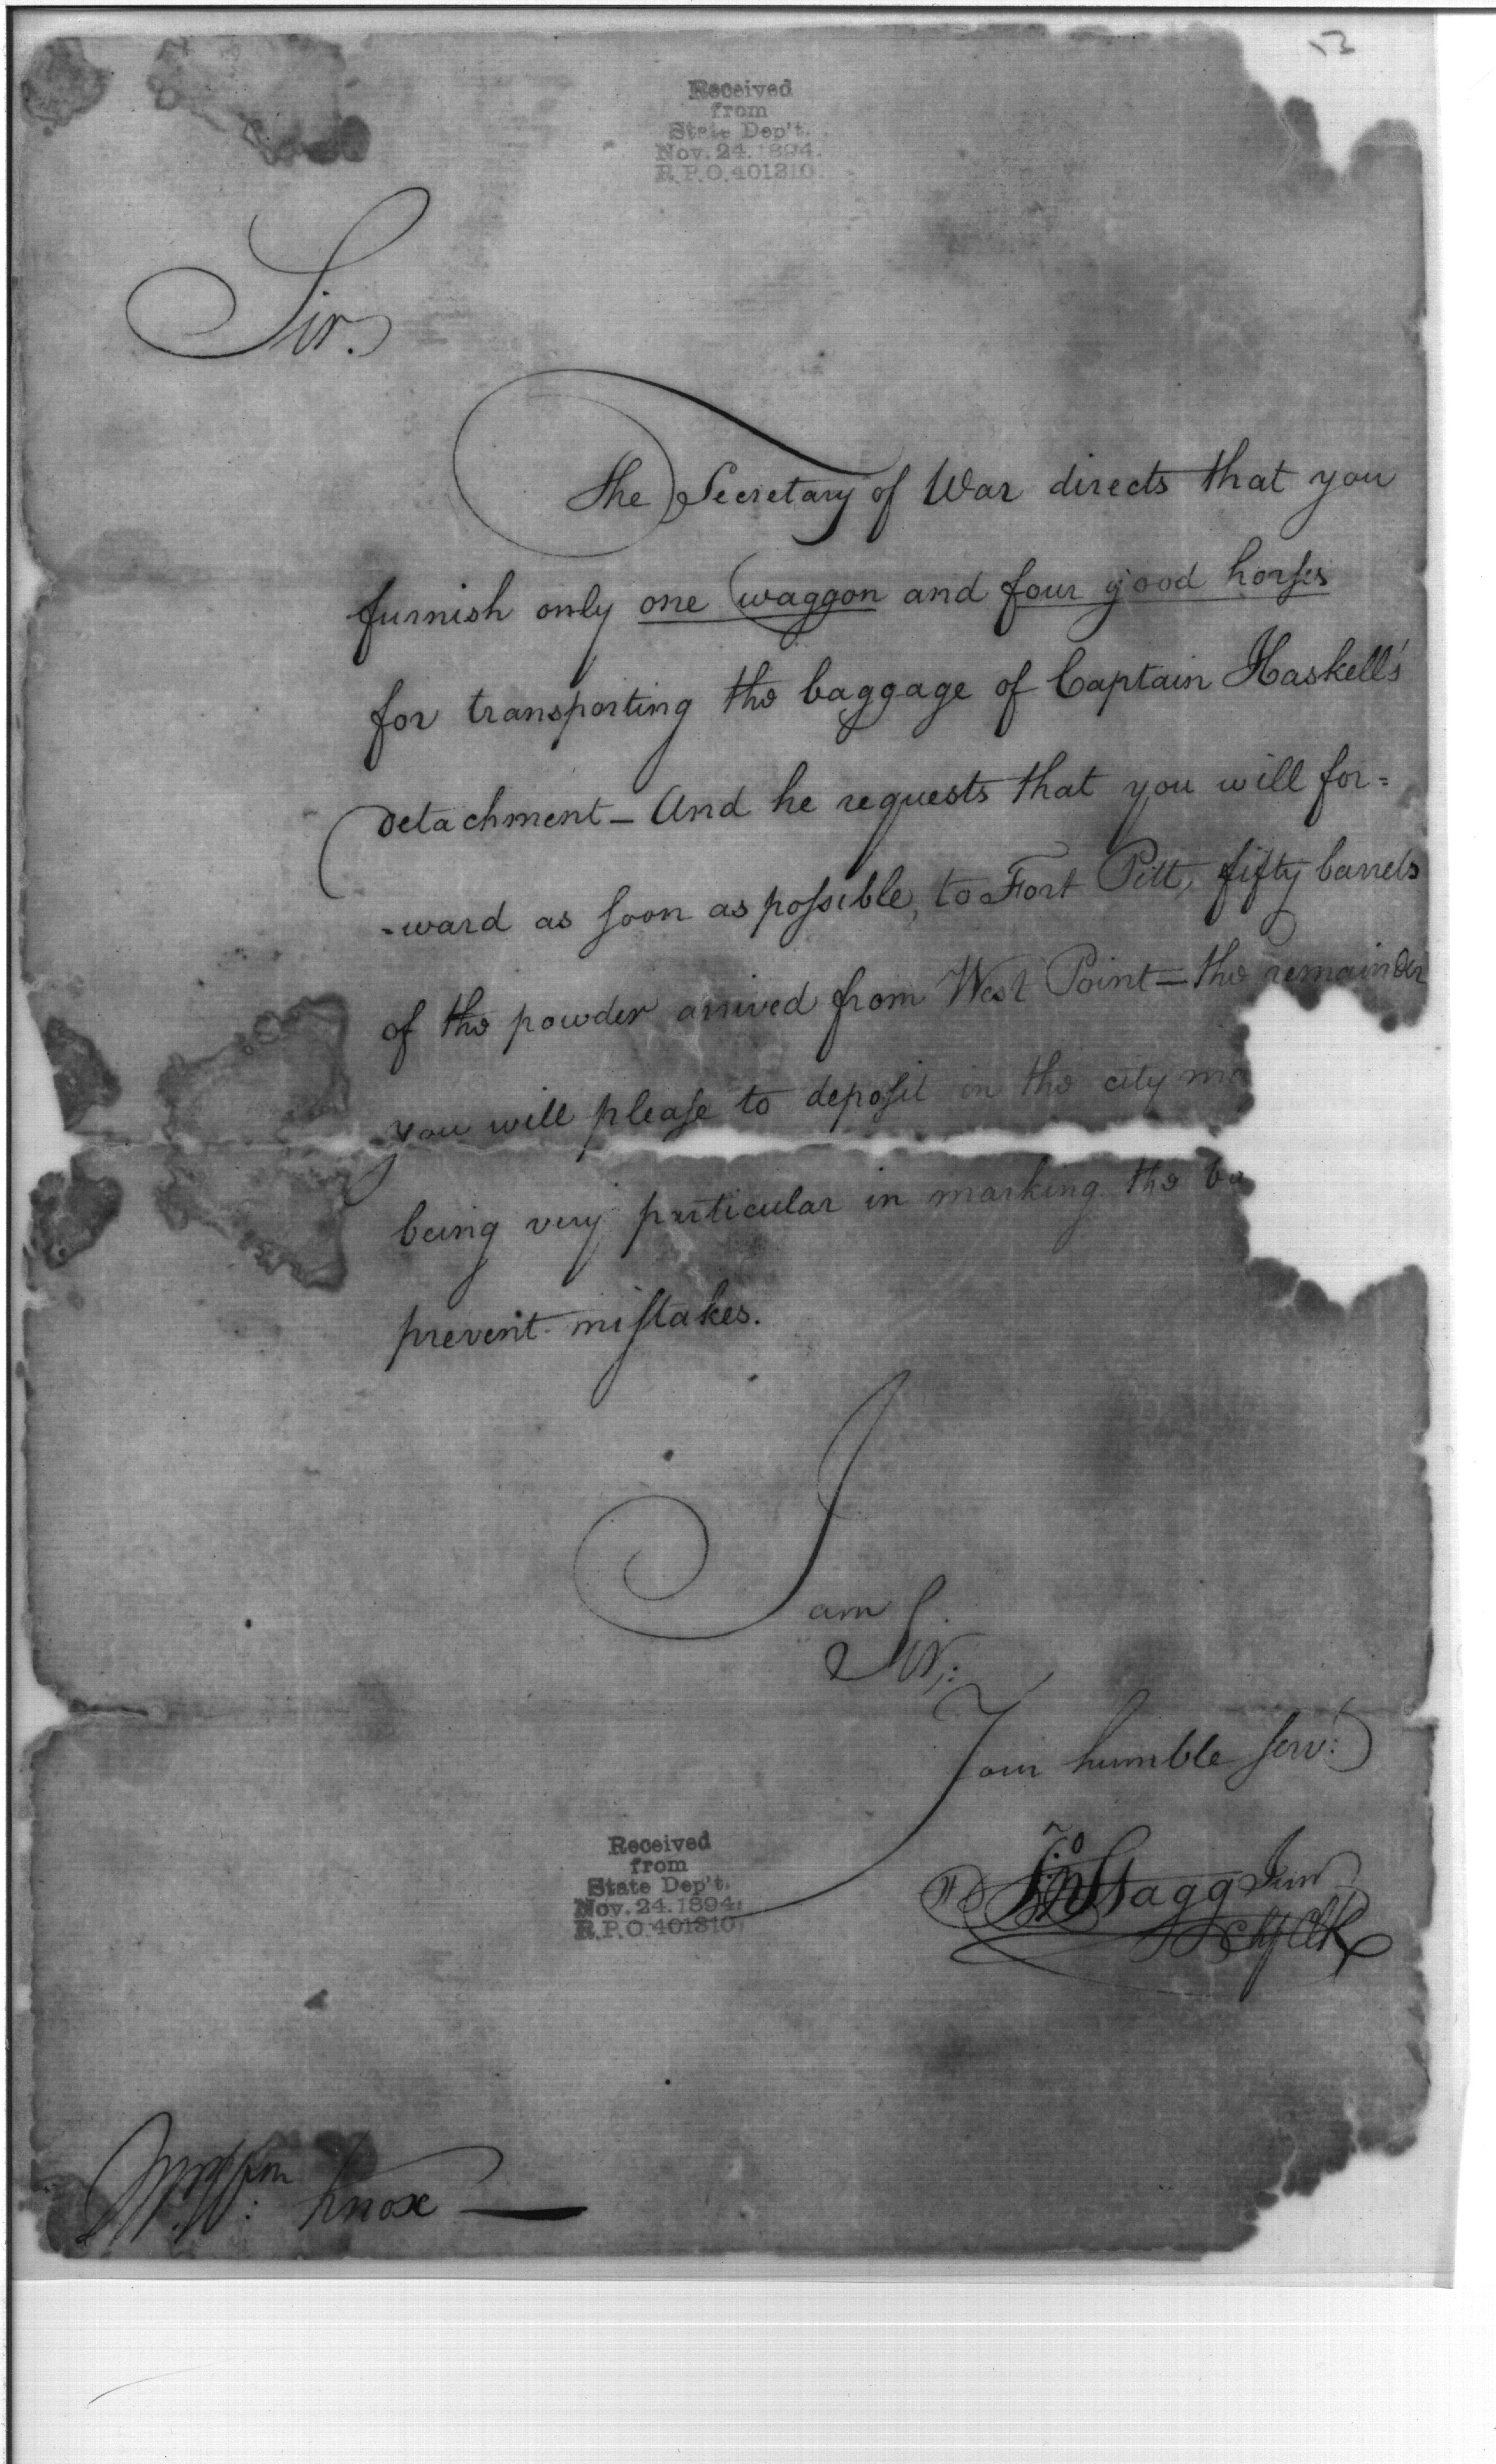 13
Received
from
State Dep't.
Nov. 24. 1894.
R.P.O. 401310.
Sir.
The Secretary of War directs that you
furnish only one waggon and four good horses
for transporting the baggage of Captain Haskell's
detachment – And he requests that you will for=
-ward as soon as possible, to Fort Pitt, fifty barrels
of the powder arrived from West Point = the remainder
you will please to deposit in the city
being very particular in marking the
prevent mistakes.
I
am
Sir,
Your humble servt.
Jno Stagg Junr
Mr. Wm: Knox —
Received
from
State Dep't.
Nov. 24. 1894.
R.P.O. 401310.